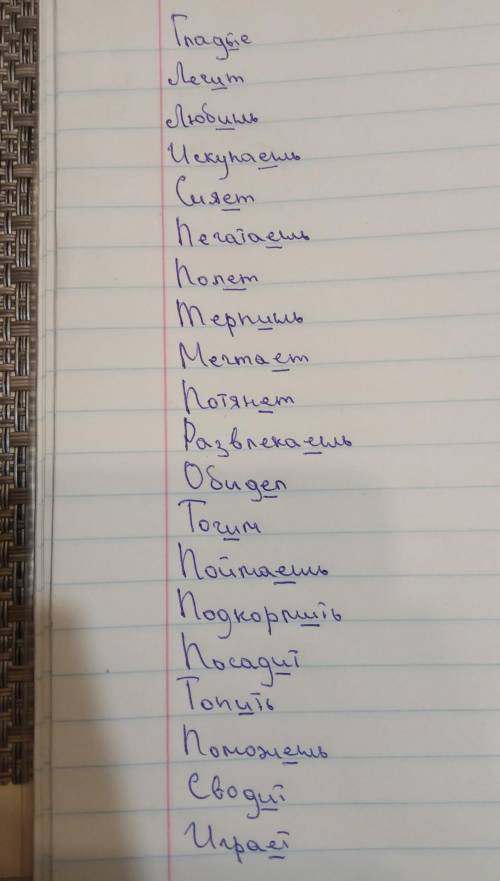 Гладые
Лечит
Любишь
Искупаешь
Сияет
Печатаешь
Полет
Терпишь
Мечтает
Потянет
Развлекаешь
Обидел
Точим
Поймаешь
Подкормить
Посадит
Топить
Поможешь
Сводит
Играет